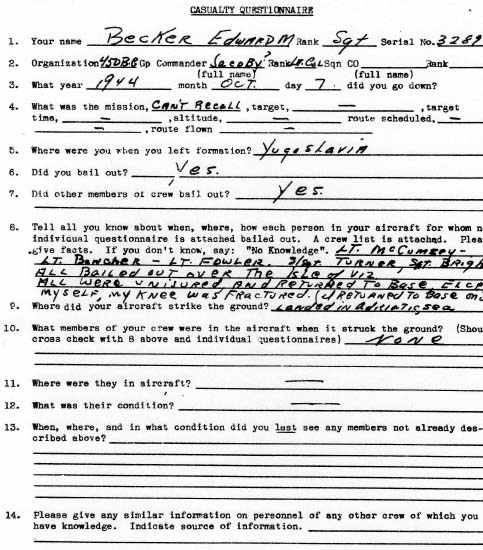 CASUALTY QUESTIONNAIRE
1. Your name BECKER EDWARD M Rank Sgt Serial No. 3289
2. Organization 450 BG Gp Commander Jacoby? Rank Lt. Col Sqn CO Rank
(full name) (full name)
3. What year 1944 month OCT. day 7. did you go down?
4. What was the mission, CAN'T RECALL, target, — , target
time, — , altitude, — route scheduled, — ,
— , route flown —
5. Where were you when you left formation? Yugoslavia
6. Did you bail out? Yes.
7. Did other members of crew bail out? Yes.
8. Tell all you know about when, where, how each person in your aircraft for whom n
individual questionnaire is attached bailed out. A crew list is attached. Plea
give facts. If you don't know, say: "No Knowledge". LT.
LT. — LT. FOWLER. S/Sgt. TURNER, Sgt. BRIGH
ALL BAILED OUT OVER THE ISLE OF VIZ
ALL WERE UNISURED AND RETURNED TO BASE ELCP
MYSELF, MY KNEE WAS FRACTURED. (I RETURNED TO BASE
9. Where did your aircraft strike the ground? LANDED IN ADRIATIC SEA
10. What members of your crew were in the aircraft when it struck the ground? (Shou
cross check with 8 above and individual questionnaires) NONE
11. Where were they in aircraft? —
12. What was their condition? —
13. When, where, and in what condition did you last see any members not already des-
cribed above?
14. Please give any similar information on personnel of any other crew of which you
have knowledge. Indicate source of information.